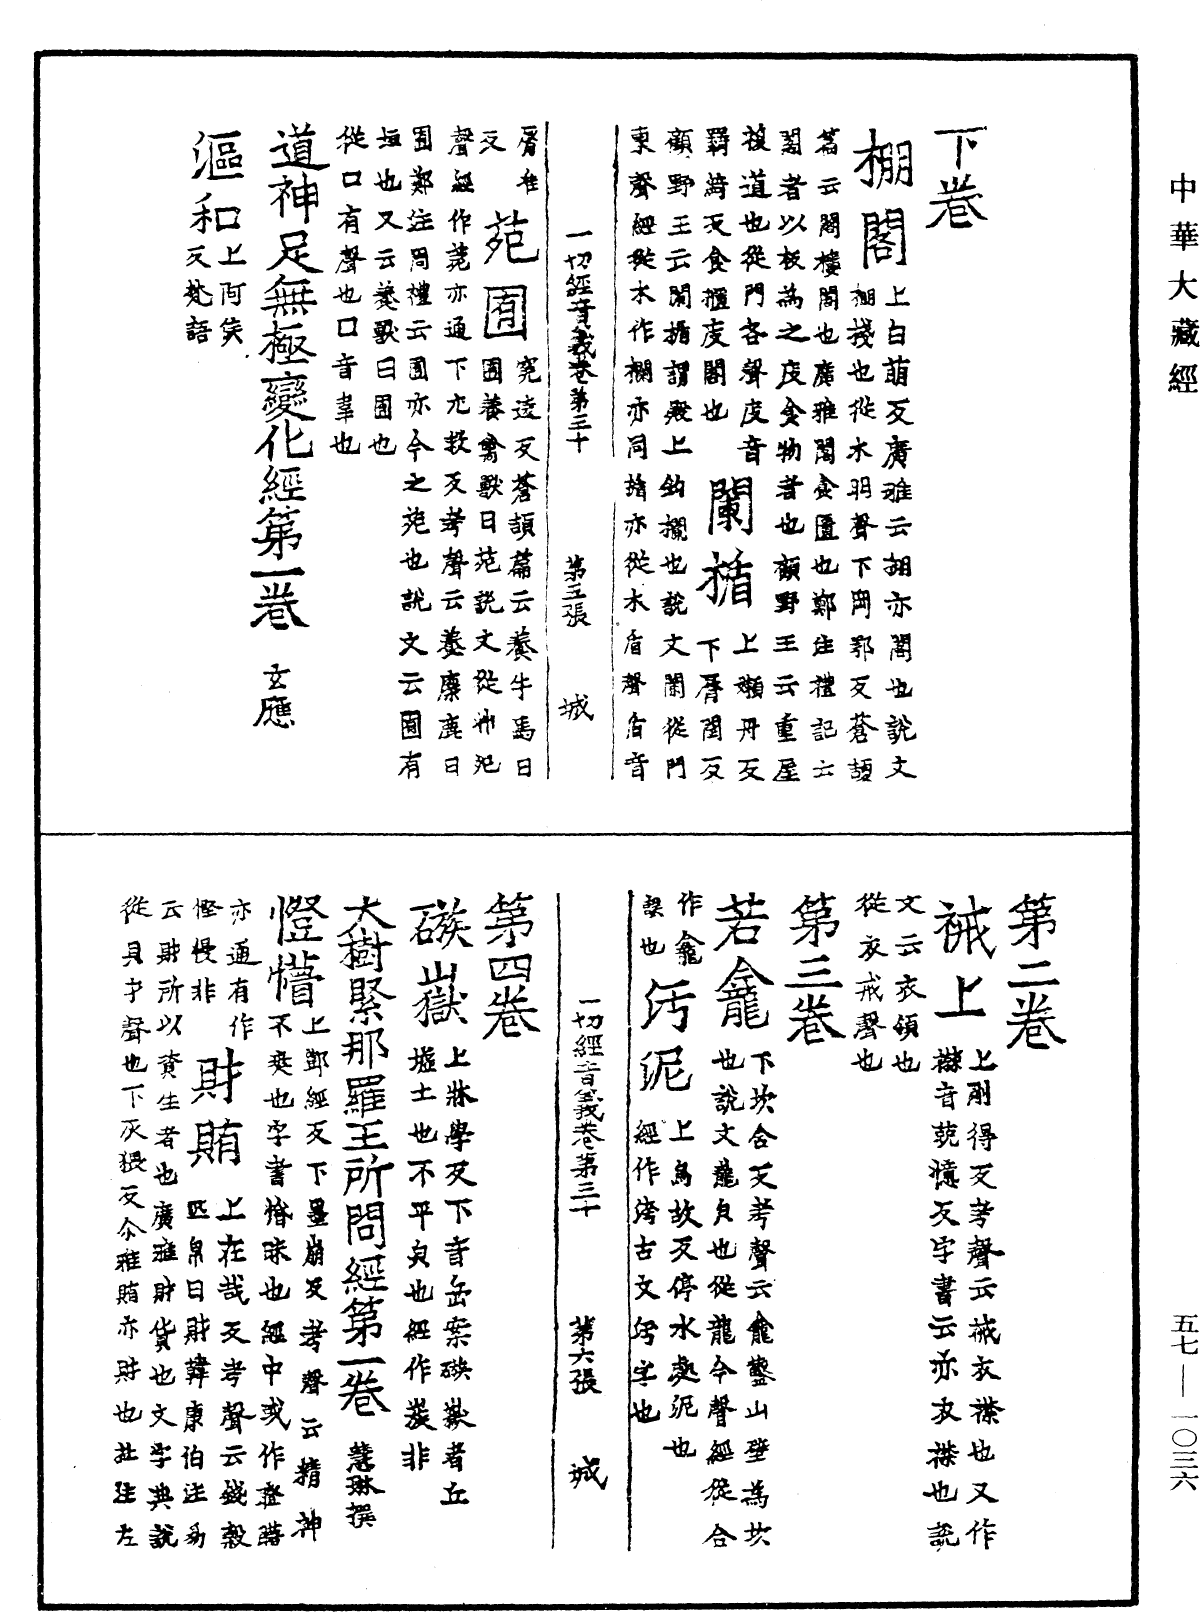 中華大藏經
下卷
棚閣上白萌反廣雅云棚亦閣也說文
棚棧也從木朋聲下岡鄂反蒼頡
篇云閣樓閣也廣雅閣食匱也鄭注禮記云
閣者以板為之庋食物者也顧野王云重屋
複道也從門各聲庋音
羇綺反食櫃庋閣也
闌楯上嬾丹反
下脣閏反
顧野王云闌楯謂殿上鈎欄也說文闌從門
柬聲經從木作欄亦同楯亦從木盾聲盾音
一切經音義卷第三十 第五張 城
脣准
反
苑囿冤遠反蒼頡篇云養牛馬曰
囿養禽獸曰苑說文從艸夗
聲經作菀亦通下尤救反考聲云養麋鹿曰
囿鄭注周禮云囿亦今之苑也說文云囿有
垣也又云養獸曰囿也
從口有聲也口音韋也
道神足無極變化經第一卷 玄應
漚和上阿侯
反梵語
第二卷
裓上上剛得反考聲云裓衣襟也又作
𧝓音菀憶反字書云亦衣襟也說
文云衣領也
從衣戒聲也
第三卷
若龕下坎含反考聲云龕鑿山壁為坎
也說文龍皃也從龍今聲經從合
作龕
誤也
汚泥上烏故反停水處泥也
經作洿古文汚字也
一切經音義卷第三十 第六張 城
第四卷
㠔山嶽上牀學反下音岳案㠔嶽者丘
墟土也不平皃也經作蔟非
大樹緊那羅王所問經第一卷 慧琳撰
憕懵上鄧經反下墨崩反考聲云精神
不爽也字書惛昧也經中或作瞪瞢
亦通有作
慳慢非
財賄上在哉反考聲云錢穀
匹帛曰財韓康伯注易
云財所以資生者也廣雅財貨也文字典說
從貝才聲也下灰猥反尒雅賄亦財也杜注左
五七—一〇三六